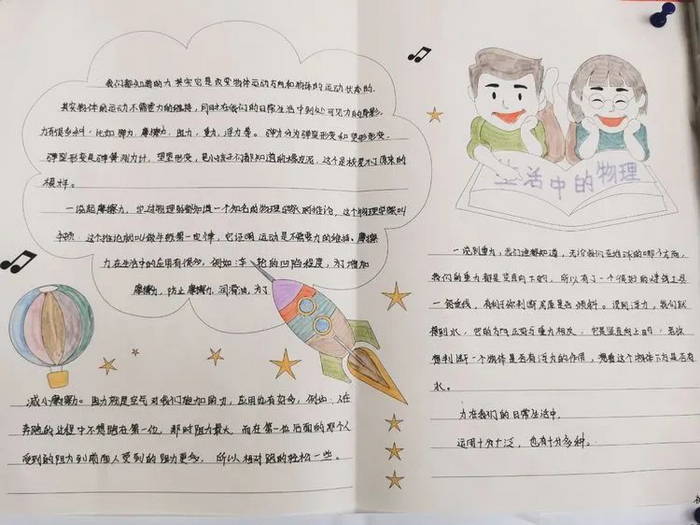 我们都知道的力,其实它是改变物体运动方向和物体的运动状态的.
其实物体的运动不需要力的维持,同时在我们的日常生活中到处可见力的身影.
力有很多种.比如弹力.摩擦力,阻力,重力,浮力等。弹力分为弹型形变和塑形形变.
弹型形变是弹簧测力计,塑型形变,是小孩子都知道的橡皮泥,这个是恢复不了原来的
模样。
一说起摩擦力,学过物理的都知道一个知名的物理学家的推论,这个物理学家叫
牛顿.这个推论就叫做牛顿第一定律,它证明运动是不需要力的维持。摩擦
力在生活中的应用有很多,例如:车轮的凹陷程度,为了增加
摩擦力,防止摩擦力,润滑油,为了
减小摩擦力。阻力就是空气对我们施加的力,应用也有如今,例如,人在
奔跑的过程中不想跑在第一位,那时阻力最大,而在第一位后面的那个人
受到的阻力到前面人受到的阻力更多,所以相对跑的轻松一些。
生活中的物理
一说到重力,我们谁都知道,无论我们在地球的哪个方向,
我们的重力都是竖直向下的,所以有了一个很好的建筑工具
一铅垂线,有利于你判断房屋是否倾斜。说到浮力,我们就
想到水,它的方向正好与重力相反,它是竖直向上的.若你
想判断一个物体是否有浮力的作用,想看这个物体下方是否有
水。
力在我们的日常生活中,
运用十分广泛,也有十分多种。